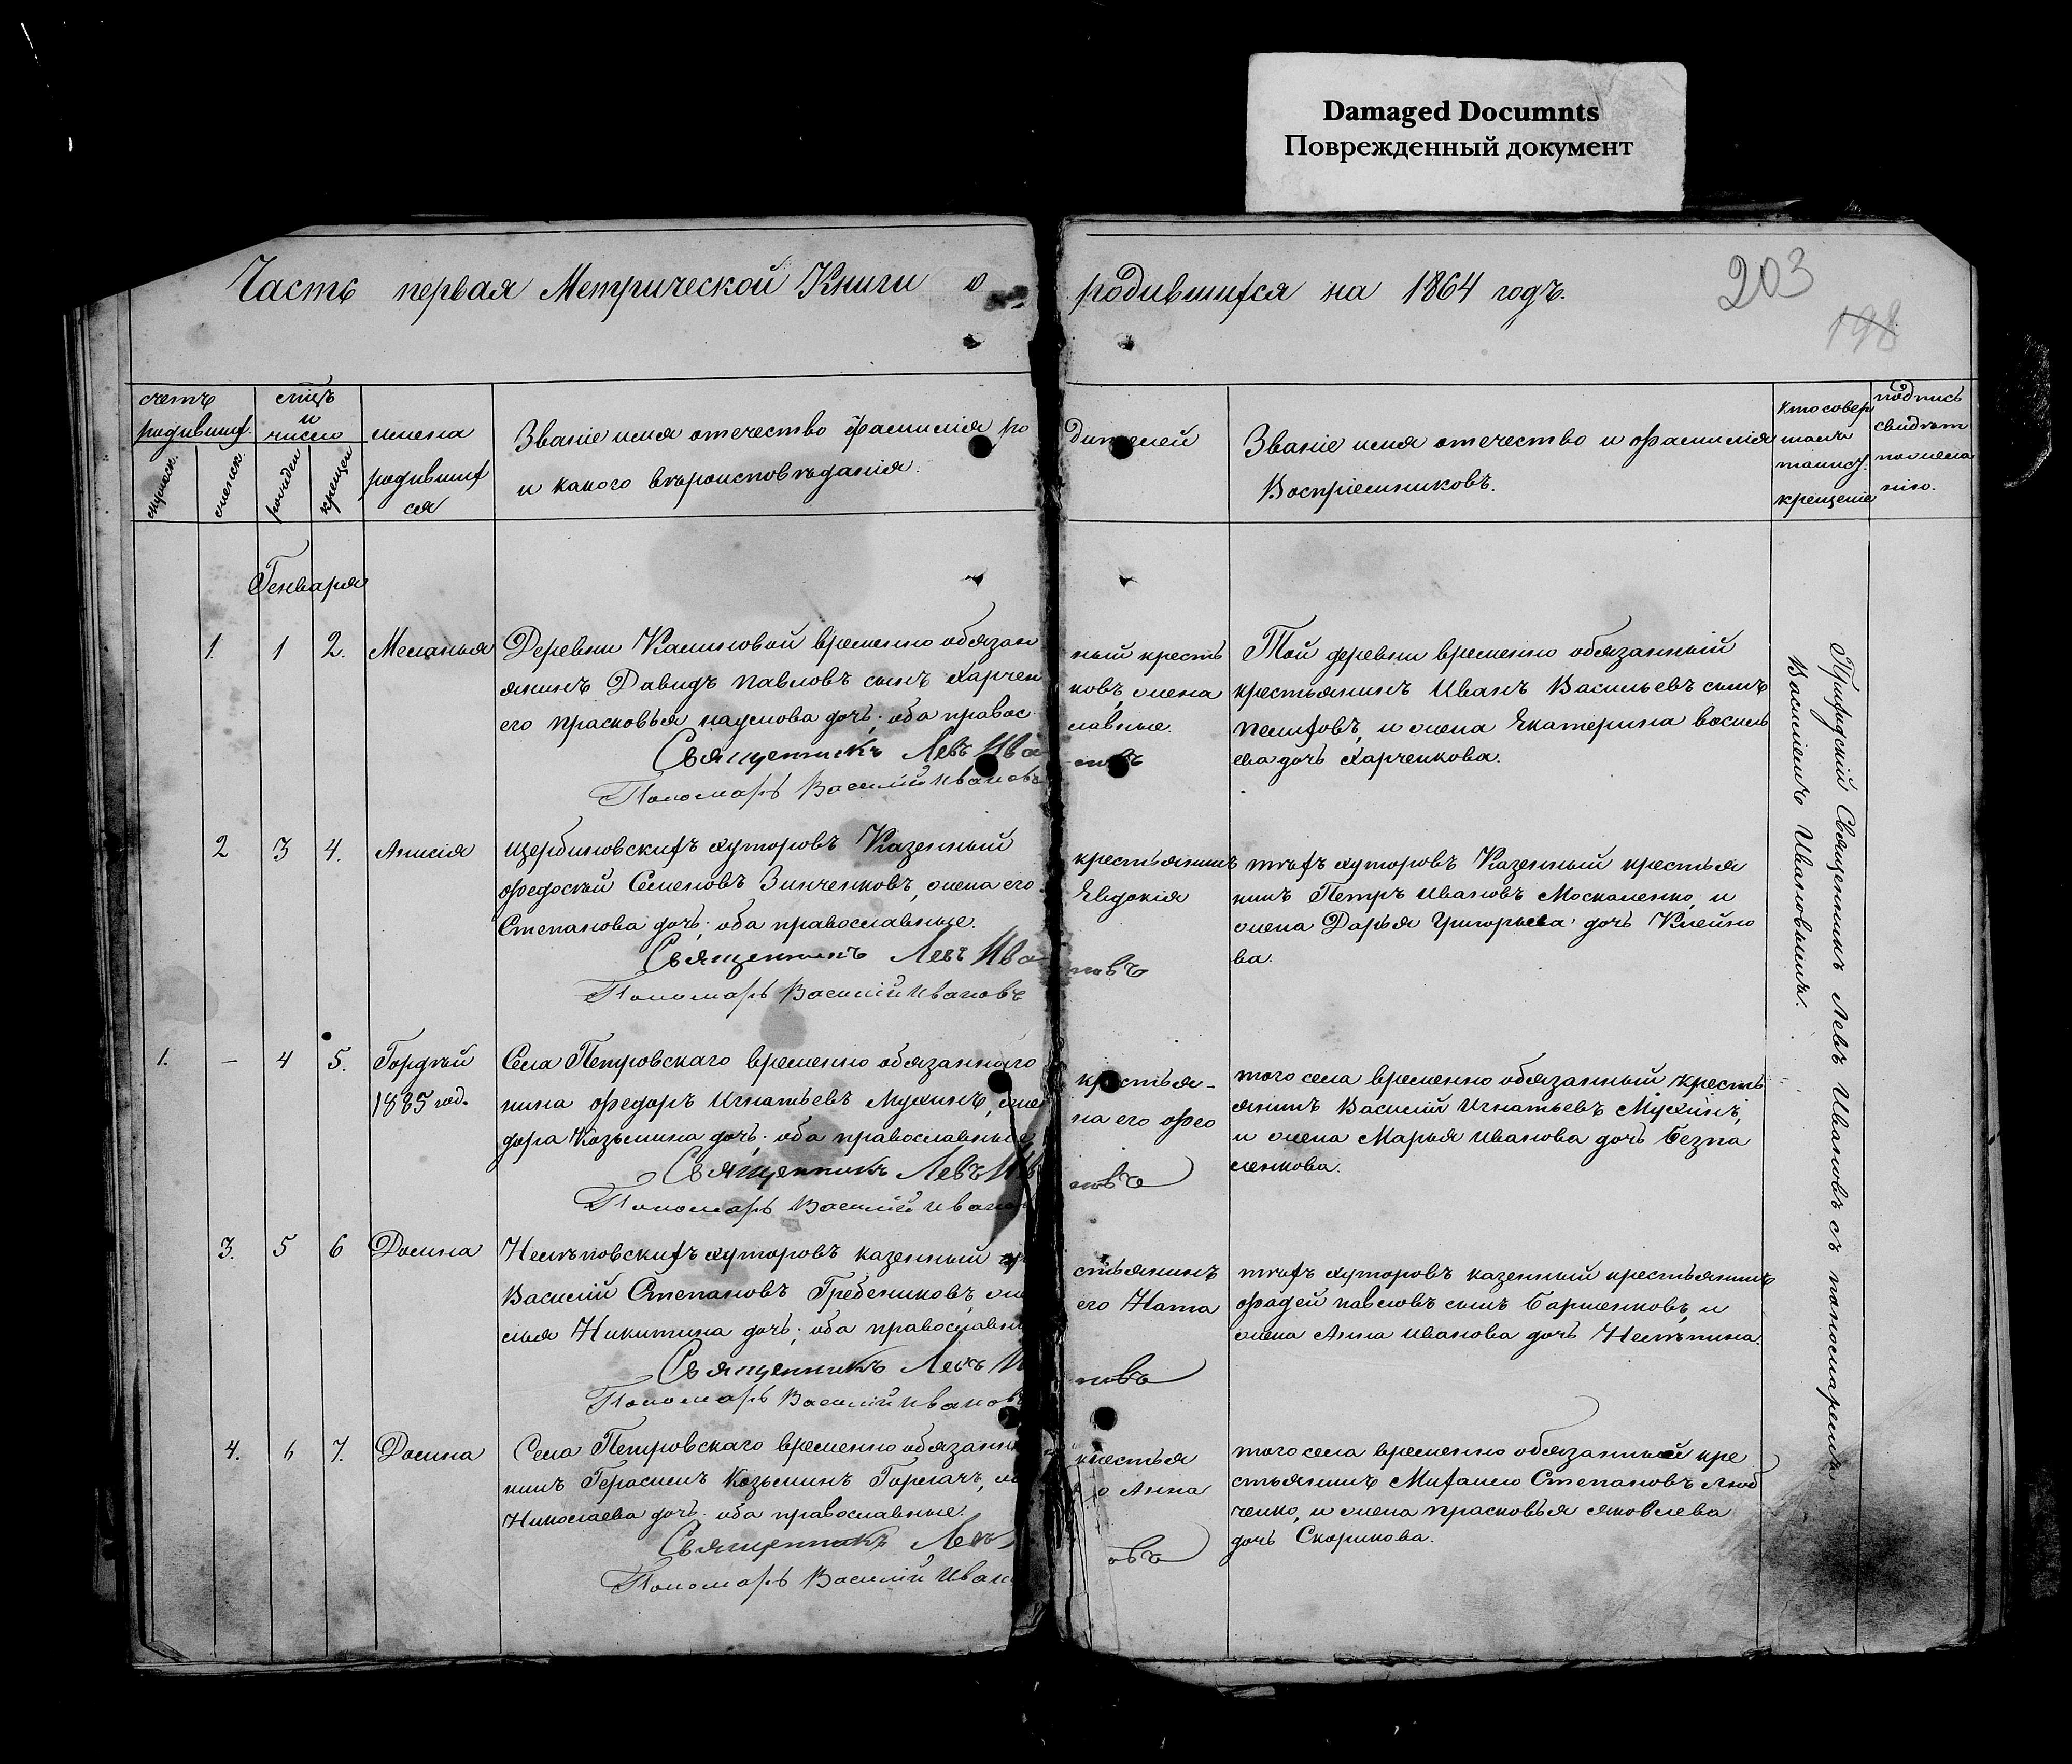 Damaged Documnts
Поврежденный документ
Часть первая Метрической Книги о родившихся на 1864 годъ.
203
198
счетъ родившихъ
мцъ и число
имена родившихся
Званіе имя отечество фамилія родителей
и какого вѣроисповѣданія.
Званіе имя отечество и фамилія
Воспріемниковъ.
кто совершалъ таинст. крещеніе
подпись свидѣт по жела нію.
мужеск.
женск.
рожден
крещен
Генваря
1. 1 2. Меланья
Деревни Калиновой временно обязан ный кресть
янинъ Давидъ Павловъ сынъ Харчен ковъ, жена
его Прасковья Наумова дочь; оба правос лавные.
Священникъ Левъ Ивановъ
Пономарь Василій Ивановъ
Той деревни временно обязанный
крестьянинъ Иванъ Васильевъ сынъ
и жена Екатерина Василь
ева дочь Харченкова.
2 3 4. Анисія
Щербиновскихъ хуторовъ Казенный крестьянинъ
Федосѣй Семеновъ Зинченковъ, жена его Евдокія
Степанова дочь; оба православные.
Священникъ Левъ Ивановъ
Пономарь Василій Ивановъ
тѣхъ хуторовъ Казенный крестья
нинъ Петръ Ивановъ Москаленко, и
жена Дарья Григорьева дочь Клейно
ва.
1. – 4 5. Гордѣй
1885 год.
Села Петровскаго временно обязаннаго крестья-
нина Федоръ Игнатьевъ Мухинъ, жена его Фео
дора Козьмина дочь; оба православные
Священникъ Левъ Ивановъ
Пономарь Василій Ивановъ
того села временно обязанный кресть
янинъ Василій Игнатьевъ Мухинъ,
и жена Марья Иванова дочь Безпа
ленкова.
3. 5 6 Домна
Нелѣповскихъ хуторовъ казенный крестьянинъ
Василій Степановъ Гребениковъ, жена его Ната
лья Никитина дочь; оба православные
Священникъ Левъ Ивановъ
Пономарь Василій Ивановъ
тѣхъ хуторовъ казенный крестьянинъ
Фадей Павловъ сынъ и
жена Анна Иванова дочь Нелѣпина.
4. 6 7. Домна
Села Петровскаго временно обязанный крестья
нинъ Герасимъ Козьминъ Горлачъ, жена его Анна
Николаева дочь; оба православные.
Священникъ Левъ Ивановъ
Пономарь Василій Ивановъ
того села временно обязанный кре
стьянинъ Михаило Степановъ Люб
ченко, и жена Прасковья Яковлева
дочь Скорикова.
Священникъ Левъ Ивановъ съ пономаремъ
Василіемъ Ивановымъ.